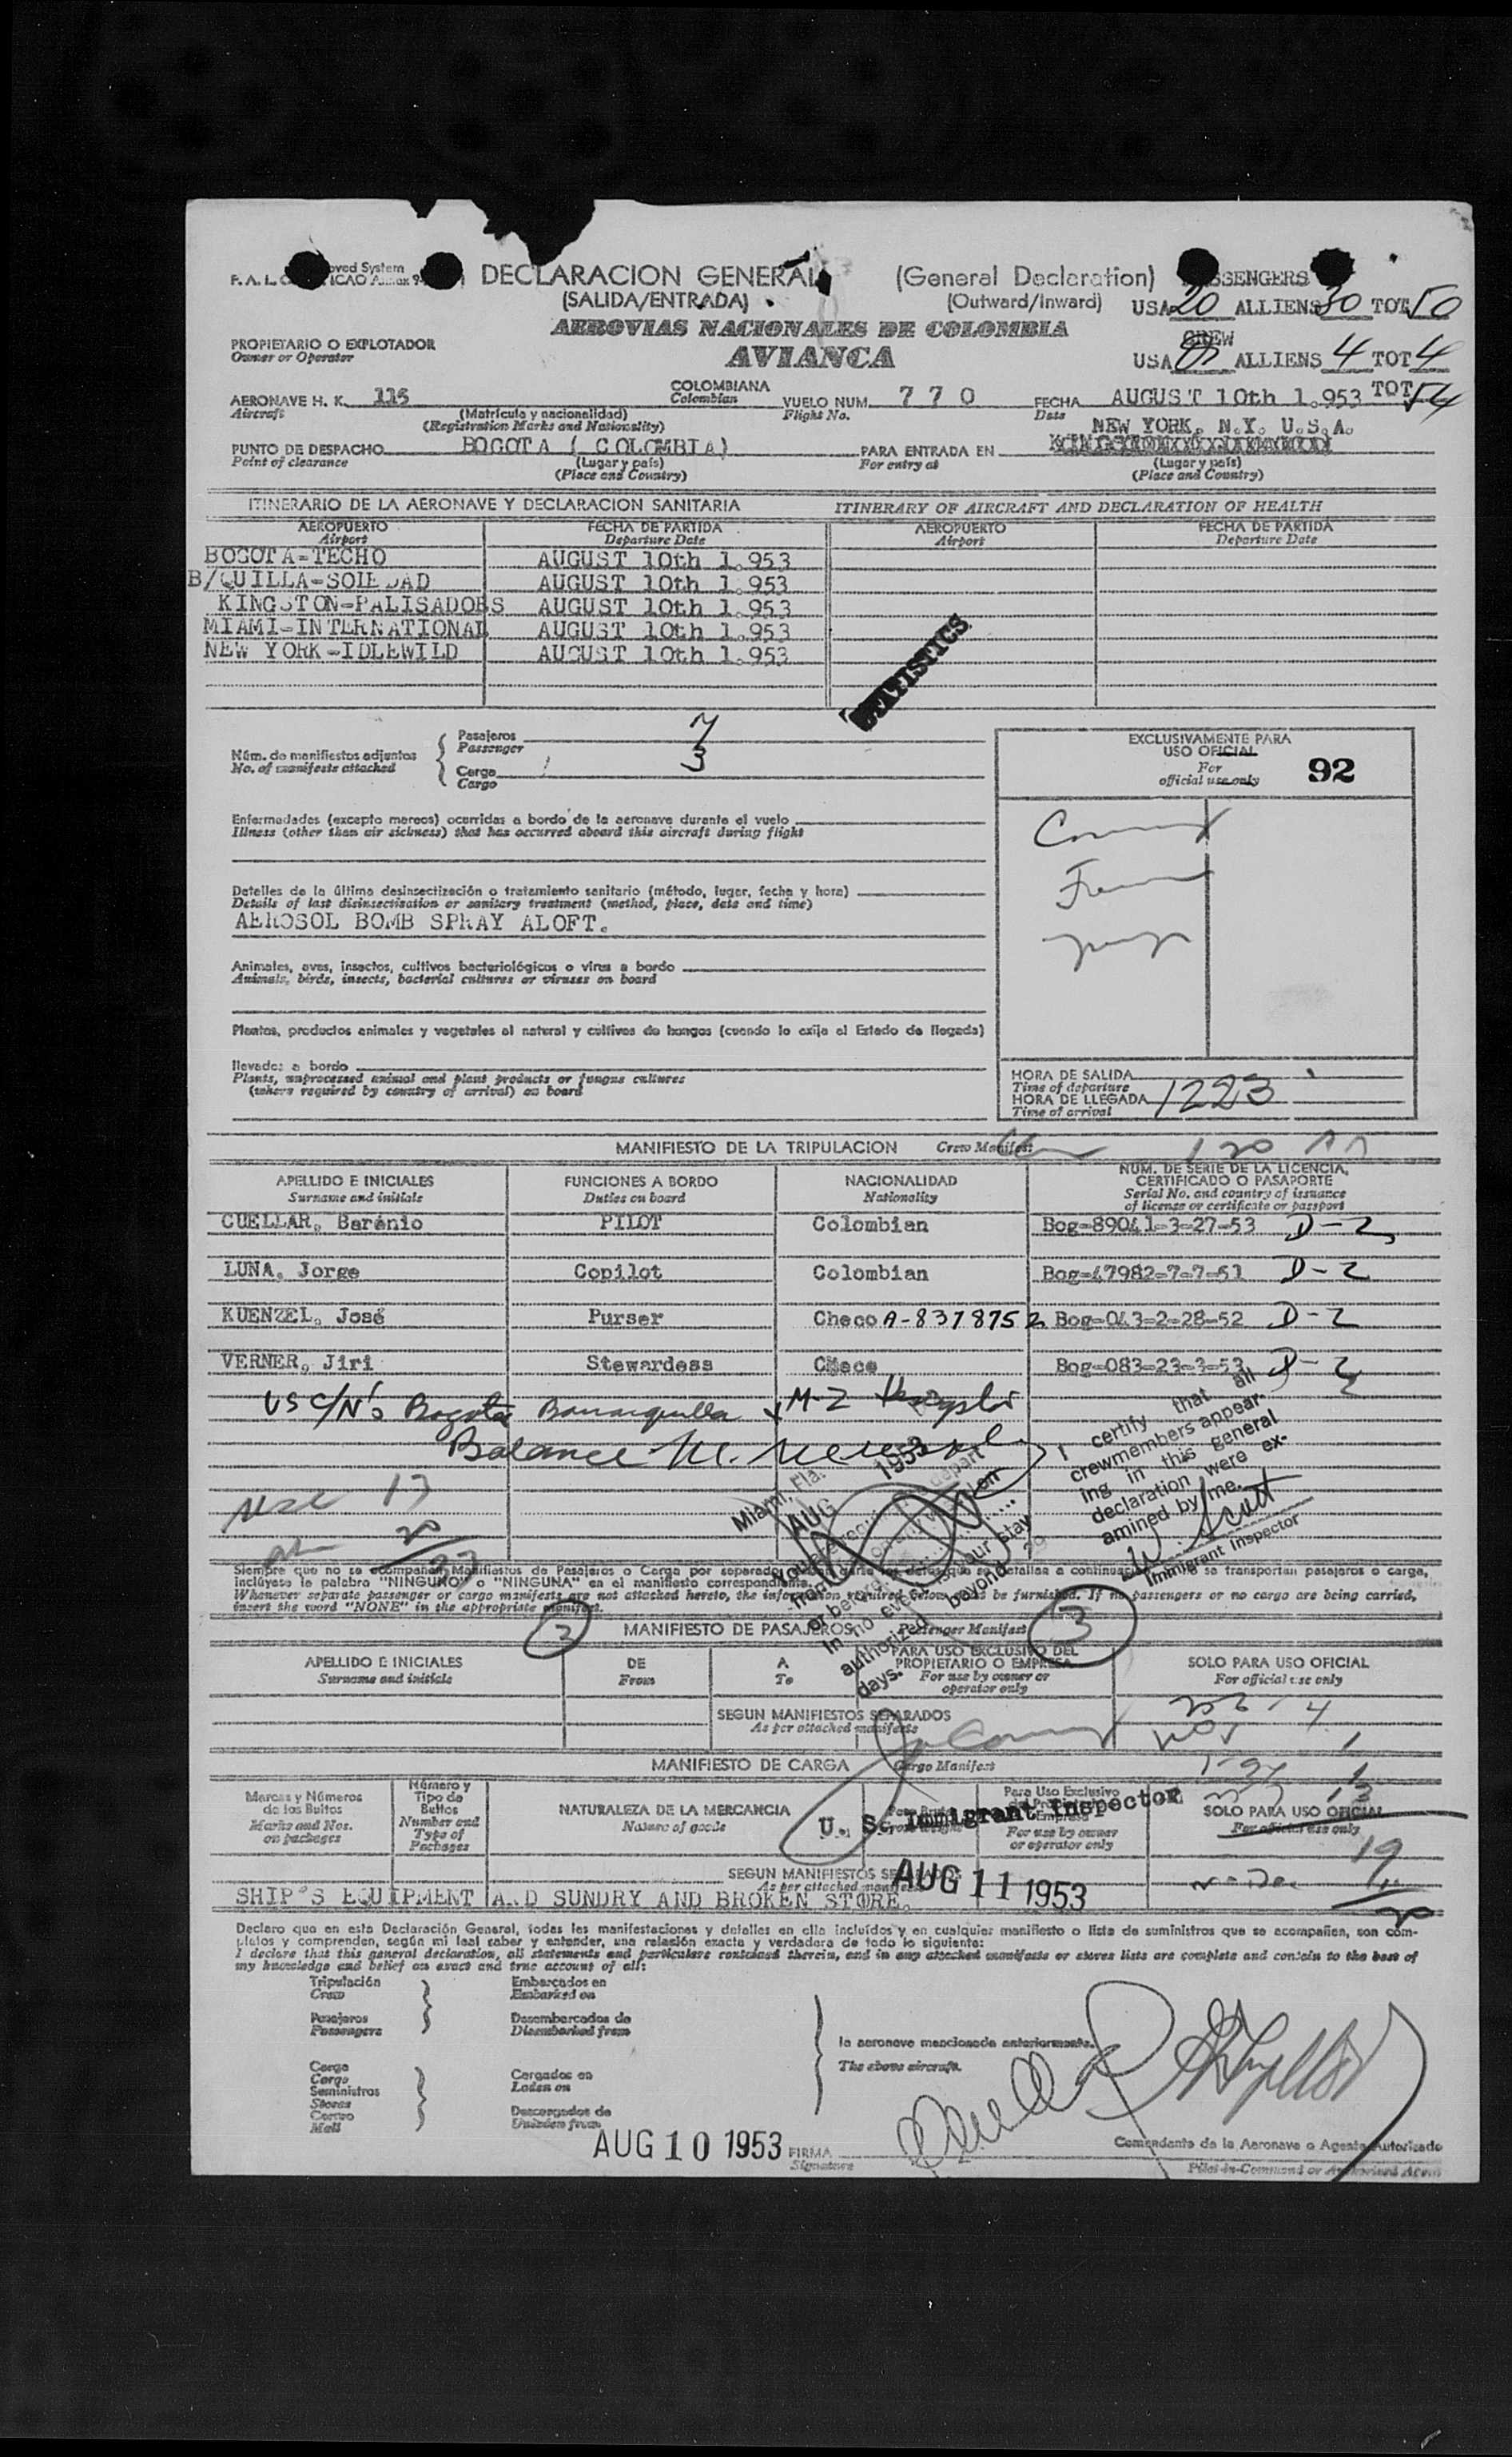 DECLARACION GENERAL (General Declaration)
(SALIDA/ENTRADA) (Outward/Inward)
USA 20 ALLIENS 30 TOT 50
AEROVIAS NACIONALES DE COLOMBIA
CREW
PROPIETARIO O EXPLOTADOR
Owner or Operator
AVIANCA
USA 0 ALLIENS 4 TOT 4
AERONAVE H. K. 115 COLOMBIANA VUELO NUM. 770 FECHA AUGUST 10th 1.953 TOT 54
Aircraft Colombian Flight No. Date
(Matrícula y nacionalidad)
(Registration Marks and Nationality)
NEW YORK. N.Y. U.S.A.
PUNTO DE DESPACHO BOGOTA ( COLOMBIA) PARA ENTRADA EN
Point of clearance For entry at
(Lugar y país) (Lugar y país)
(Place and Country) (Place and Country)
ITINERARIO DE LA AERONAVE Y DECLARACION SANITARIA ITINERARY OF AIRCRAFT AND DECLARATION OF HEALTH
AEROPUERTO FECHA DE PARTIDA AEROPUERTO FECHA DE PARTIDA
Airport Departure Date Airport Departure Date
BOGOTA-TECHO AUGUST 10th 1.953
B/QUILLA-SOLEDAD AUGUST 10th 1.953
KINGSTON-PALISADOES AUGUST 10th 1.953
MIAMI-INTERNATIONAL AUGUST 10th 1.953
NEW YORK-IDLEWILD AUGUST 10th 1.953
STATISTICS
Núm. de manifiestos adjuntos
No. of manifests attached
Pasajeros
Passenger
Carga 3
Cargo
EXCLUSIVAMENTE PARA
USO OFICIAL
For
official use only
92
Enfermedades (excepto mareos) ocurridas a bordo de la aeronave durante el vuelo
Illness (other than air sickness) that has occurred aboard this aircraft during flight
Detalles de la última desinsectización o tratamiento sanitario (método, lugar, fecha y hora)
Details of last disinsectisation or sanitary treatment (method, place, date and time)
AEROSOL BOMB SPRAY ALOFT.
Animales, aves, insectos, cultivos bacteriológicos o virus a bordo
Animals, birds, insects, bacterial cultures or viruses on board
Plantas, productos animales y vegetales al natural y cultivos de hongos (cuando lo exija el Estado de llegada)
llevados a bordo
Plants, unprocessed animal and plant products or fungus cultures
(where required by country of arrival) on board
HORA DE SALIDA
Time of departure
HORA DE LLEGADA 1223
Time of arrival
MANIFIESTO DE LA TRIPULACION Crew Manifest
APELLIDO E INICIALES FUNCIONES A BORDO NACIONALIDAD NUM. DE SERIE DE LA LICENCIA,
CERTIFICADO O PASAPORTE
Surname and initials Duties on board Nationality Serial No. and country of issuance
of license or certificate or passport
CUELLAR, Barénio PILOT Colombian Bog-89041-3-27-53 D-2
LUNA, Jorge Copilot Colombian Bog-47982-7-7-51 D-2
KUENZEL, José Purser Checo A-8378752 Bog-043-2-28-52 D-2
VERNER, Jiri Stewardess Checo Bog-083-23-3-53 D-2
US C/N's Bogota Barranquilla
Balance
Miami, Fla.
AUG 1953
authorized beyond
days.
I certify that all
crewmembers appear-
ing in this general
declaration were ex-
amined by me.
W. Scott
Immigrant Inspector
Siempre que no se acompañen Manifiestos de Pasajeros o Carga por separado
se transportan pasajeros o carga,
inclúyase la palabra "NINGUNO" o "NINGUNA" en el manifiesto correspondiente.
Whenever separate passenger or cargo manifests are not attached hereto, the information required below must be furnished. If no passengers or no cargo are being carried,
insert the word "NONE" in the appropriate manifest.
MANIFIESTO DE PASAJEROS Passenger Manifest
3
APELLIDO E INICIALES DE A PARA USO EXCLUSIVO DEL
PROPIETARIO O EMPRESA SOLO PARA USO OFICIAL
Surname and initials From To For use by owner or
operator only For official use only
SEGUN MANIFIESTOS SEPARADOS
As per attached manifests
MANIFIESTO DE CARGA Cargo Manifest
Marcas y Números
de los Bultos
Marks and Nos.
on packages
Número y
Tipo de
Bultos
Number and
Type of
Packages
NATURALEZA DE LA MERCANCIA
Nature of goods
Para Uso Exclusivo
For use by owner
or operator only
SOLO PARA USO OFICIAL
For official use only
U. S. Immigrant Inspector
19
SEGUN MANIFIESTOS
As per attached manifests
AUG 11 1953
SHIP'S EQUIPMENT AND SUNDRY AND BROKEN STORE.
Declaro que en esta Declaración General, todas las manifestaciones y detalles en ella incluídos y en cualquier manifiesto o lista de suministros que se acompañen, son com-
pletos y comprenden, según mi leal saber y entender, una relación exacta y verdadera de todo lo siguiente:
I declare that this general declaration, all statements and particulars contained therein, and in any attached manifests or stores lists are complete and contain to the best of
my knowledge and belief an exact and true account of all:
Tripulación Embarcados en
Crew Embarked on
Pasajeros Desembarcados de
Passengers Disembarked from
la aeronave mencionada anteriormente.
The above aircraft.
Carga Cargados en
Cargo Laden on
Suministros
Stores
Correo Descargados de
Mail Unladen from
AUG 10 1953
FIRMA
Signature
Comandante de la Aeronave o Agente Autorizado
Pilot-in-Command or Authorized Agent